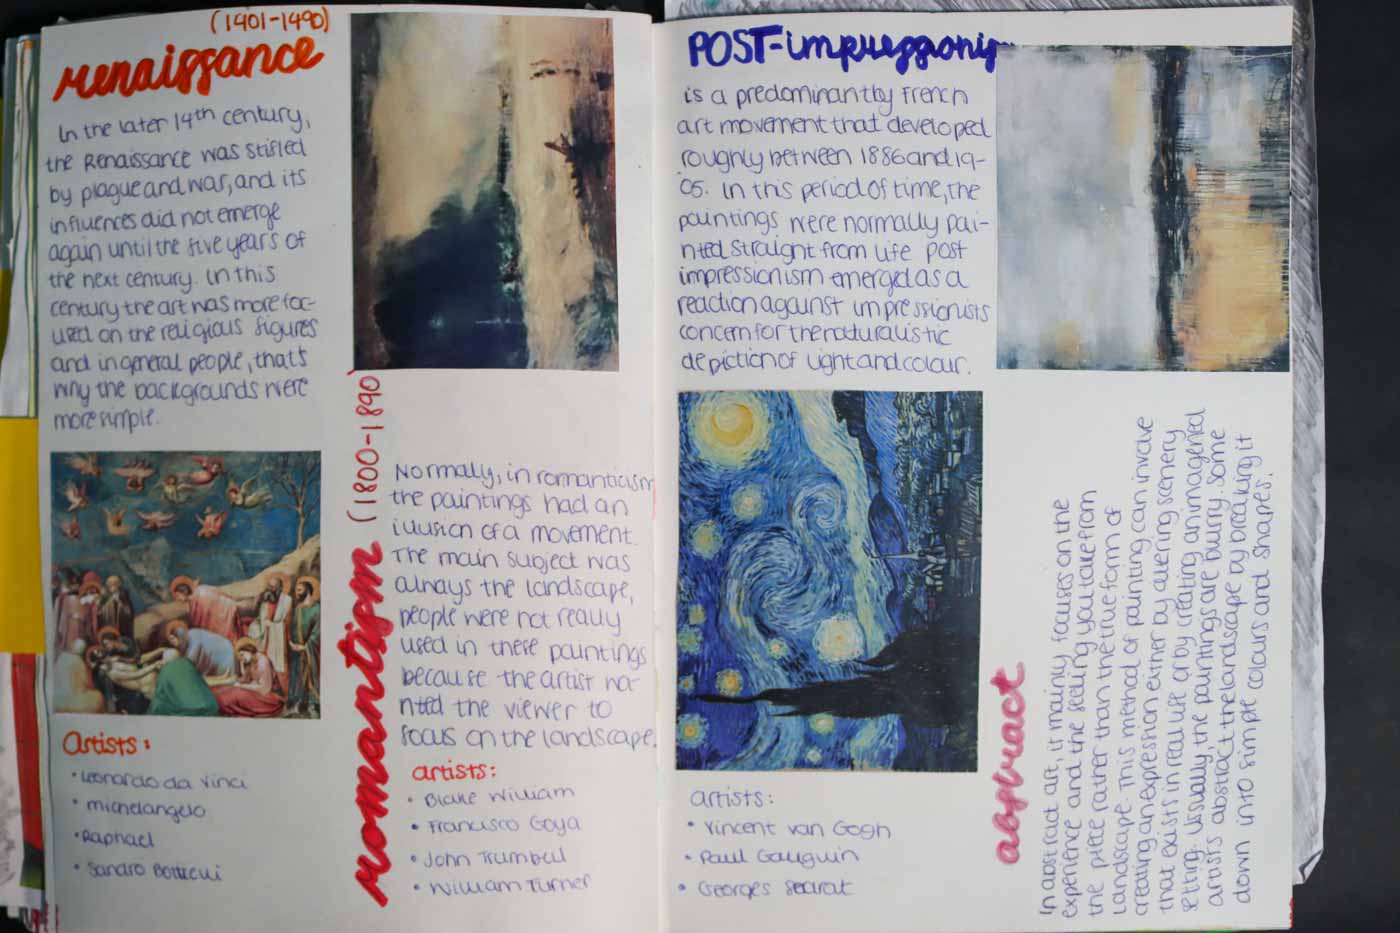 (1401-1490)
Renaissance
In the later 14th century,
the Renaissance was stifled
by plague and war, and its
influences did not emerge
again until the five years of
the next century. In this
century the art was more foc-
used on the religious figures
and in general people, that's
why the backgrounds were
more simple.
Artists:
• Leonardo da Vinci
• michelangelo
• Raphael
• Sandro Botticelli
romantism (1800-1890)
Normally, in romanticism
the paintings had an
illusion of a movement.
The main subject was
always the landscape,
people were not really
used in these paintings
because the artist wa-
nted the viewer to
focus on the landscape.
artists:
• Blake William
• Francisco Goya
• John Trumbull
• William Turner
POST-impressionis
is a predominantly French
art movement that developed
roughly between 1886 and 19-
05. In this period of time, the
paintings were normally pai-
nted straight from life Post
impressionism emerged as a
reaction against impressionists
concern for the naturalistic
depiction of light and colour.
artists:
• Vincent van Gogh
• Paul Gauguin
• Georges Searat
abstract
In abstract art, it mainly focuses on the
experience and the feeling you take from
the piece rather than the true form of
landscape. This method of painting can involve
creating an expression either by altering scenery
that exists in real life or by creating an imagened
setting. Usually, the paintings are blurry. Some
artists abstract the landscape by breaking it
down into simple colours and shapes.